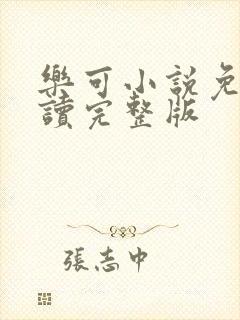 樂可小說免
讀完整版
張志中